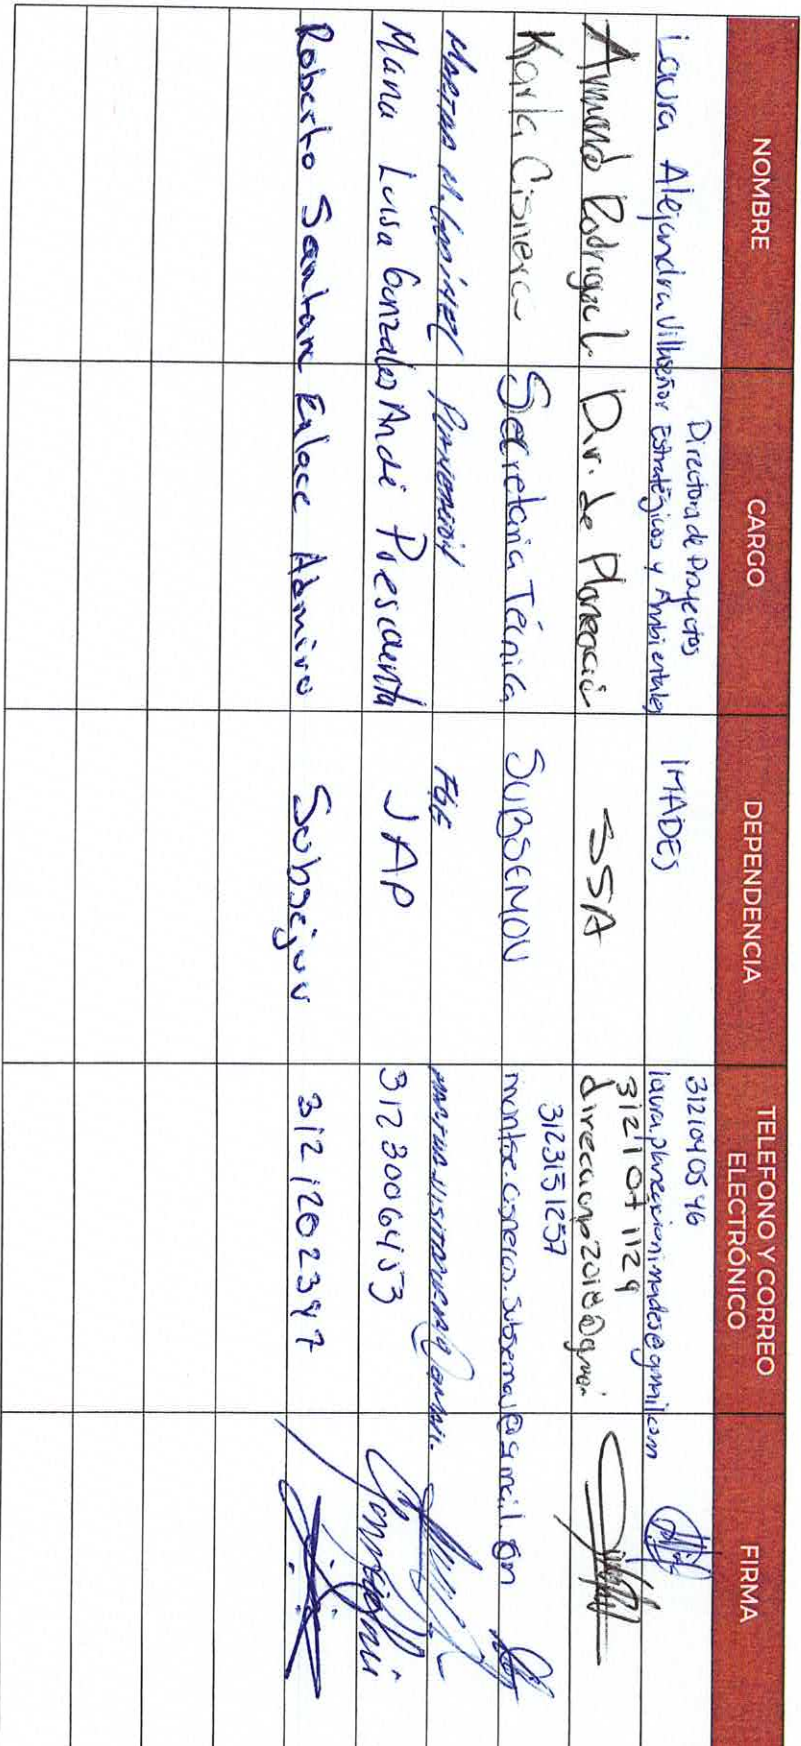 NOMBRE CARGO DEPENDENCIA TELEFONO Y CORREO ELECTRÓNICO FIRMA
Laura Alejandra Villaseñor Directora de Proyectos Estratégicos y Ambientales IMADES 3121040546 laura.planeacionimades@gmail.com
Armando Rodriguez L Dir. de Planeació SSA 3121071129
Karla Cisneros Secretaria Técnica SUBSEMOV 3123131257 montse.cisneros.subsemov@gmail.com
FGE
Maria Luisa González Andi Presidenta JAP 3123006453
Roberto Santana Enlace Admivo Subsejuv 3121202397